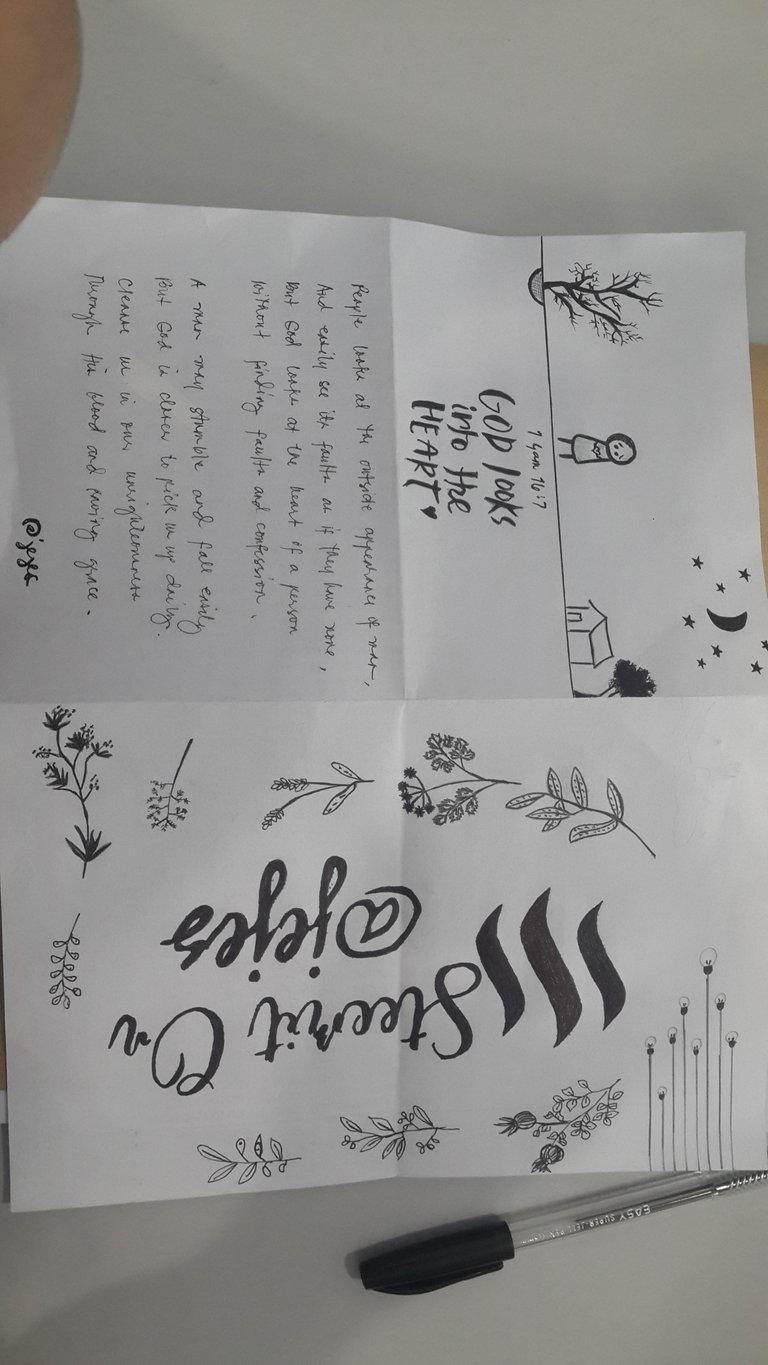 1 Sam 16:7
GOD looks
into the
HEART
People looks at the outside appearance of man,
And easily see its faults as if they have none,
But God looks at the heart of a person
Without finding faults and confession.
A man may stumble and fall easily
But God is closer to pick us up daily.
Cleanse us in our unrighteousness
Through His blood and saving grace.
@jejes
Steemit On
@jejes
EASY SUPER JELL PEN